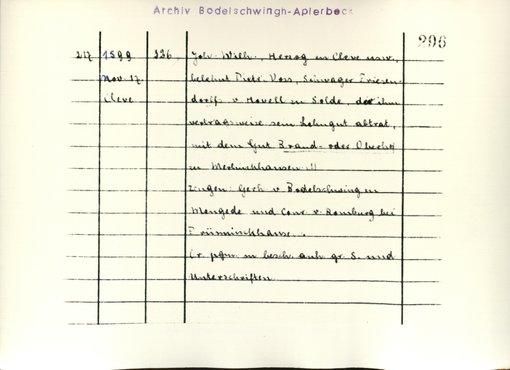 Archiv Bodelschwingh-Aplerbeck
296
217 1599 226. Joh. Wilh., Herzog in Cleve usw.,
Nov. 17. belehnt Diet. Voss, Schwager Friesen-
Cleve dorffs v. Hövell zu Sölde, der ihm
vertragsweise sein Lehngut abtrat,
mit dem Gut Brand- oder Oberhof
zu
Zeugen: Gerh. v. Bodelschwing zu
Mengede und Conr. v. Romburg bei
Or. pgm. m. besch. anh. gr. S. und
Unterschriften